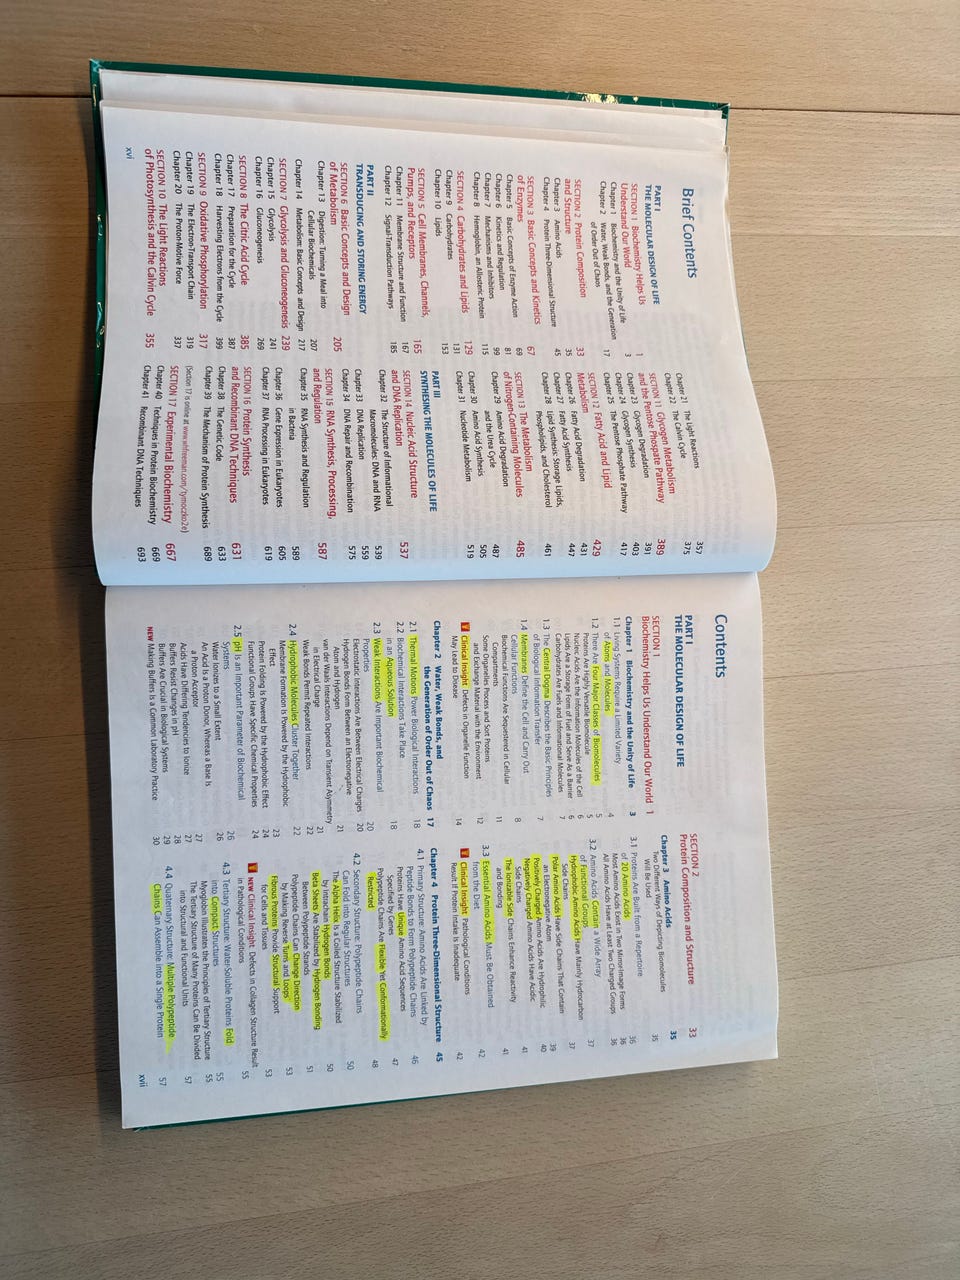 Brief Contents
PART I
THE MOLECULAR DESIGN OF LIFE
SECTION 1 Biochemistry Helps Us
Understand Our World 1
Chapter 1 Biochemistry and the Unity of Life 3
Chapter 2 Water, Weak Bonds, and the Generation
of Order Out of Chaos 17
SECTION 2 Protein Composition
and Structure 33
Chapter 3 Amino Acids 35
Chapter 4 Protein Three-Dimensional Structure 45
SECTION 3 Basic Concepts and Kinetics
of Enzymes 67
Chapter 5 Basic Concepts of Enzyme Action 69
Chapter 6 Kinetics and Regulation 81
Chapter 7 Mechanisms and Inhibitors 99
Chapter 8 Hemoglobin, an Allosteric Protein 115
SECTION 4 Carbohydrates and Lipids 129
Chapter 9 Carbohydrates 131
Chapter 10 Lipids 153
SECTION 5 Cell Membranes, Channels,
Pumps, and Receptors 165
Chapter 11 Membrane Structure and Function 167
Chapter 12 Signal-Transduction Pathways 185
PART II
TRANSDUCING AND STORING ENERGY
SECTION 6 Basic Concepts and Design
of Metabolism 205
Chapter 13 Digestion: Turning a Meal into
Cellular Biochemicals 207
Chapter 14 Metabolism: Basic Concepts and Design 217
SECTION 7 Glycolysis and Gluconeogenesis 239
Chapter 15 Glycolysis 241
Chapter 16 Gluconeogenesis 269
SECTION 8 The Citric Acid Cycle 385
Chapter 17 Preparation for the Cycle 387
Chapter 18 Harvesting Electrons from the Cycle 399
SECTION 9 Oxidative Phosphorylation 317
Chapter 19 The Electron-Transport Chain 319
Chapter 20 The Proton-Motive Force 337
SECTION 10 The Light Reactions
of Photosynthesis and the Calvin Cycle 355
xvi
Chapter 21 The Light Reactions 357
Chapter 22 The Calvin Cycle 375
SECTION 11 Glycogen Metabolism
and the Pentose Pospate Pathway 389
Chapter 23 Glycogen Degradation 391
Chapter 24 Glycogen Synthesis 403
Chapter 25 The Pentose Phosphate Pathway 417
SECTION 12 Fatty Acid and Lipid
Metabolism 429
Chapter 26 Fatty Acid Degradation 431
Chapter 27 Fatty Acid Synthesis 447
Chapter 28 Lipid Synthesis: Storage Lipids,
Phospholipids, and Cholesterol 461
SECTION 13 The Metabolism
of Nitrogen-Containing Molecules 485
Chapter 29 Amino Acid Degradation
and the Urea Cycle 487
Chapter 30 Amino Acid Synthesis 505
Chapter 31 Nucleotide Metabolism 519
PART III
SYNTHESIZING THE MOLECULES OF LIFE
SECTION 14 Nucleic Acid Structure
and DNA Replication 537
Chapter 32 The Structure of Informational
Macromolecules: DNA and RNA 539
Chapter 33 DNA Replication 559
Chapter 34 DNA Repair and Recombination 575
SECTION 15 RNA Synthesis, Processing,
and Regulation 587
Chapter 35 RNA Synthesis and Regulation
in Bacteria 589
Chapter 36 Gene Expression in Eukaryotes 605
Chapter 37 RNA Processing in Eukaryotes 619
SECTION 16 Protein Synthesis
and Recombinant DNA Techniques 631
Chapter 38 The Genetic Code 633
Chapter 39 The Mechanism of Protein Synthesis 689
(Section 17 is online at www.whfreeman.com/tymoczko2e)
SECTION 17 Experimental Biochemistry 667
Chapter 40 Techniques in Protein Biochemistry 669
Chapter 41 Recombinant DNA Techniques 693
Contents
PART I
THE MOLECULAR DESIGN OF LIFE
SECTION 1
Biochemistry Helps Us Understand Our World 1
Chapter 1 Biochemistry and the Unity of Life 3
1.1 Living Systems Require a Limited Variety
of Atoms and Molecules 4
1.2 There Are Four Major Classes of Biomolecules 5
Proteins Are Highly Versatile Biomolecules 5
Nucleic Acids Are the Information Molecules of the Cell 6
Lipids Are a Storage Form of Fuel and Serve As a Barrier 6
Carbohydrates Are Fuels and Informational Molecules 7
1.3 The Central Dogma Describes the Basic Principles
of Biological Information Transfer 7
1.4 Membranes Define the Cell and Carry Out
Cellular Functions 8
Biochemical Functions Are Sequestered in Cellular
Compartments 11
Some Organelles Process and Sort Proteins
and Exchange Material with the Environment 12
Clinical Insight Defects in Organelle Function
May Lead to Disease 14
Chapter 2 Water, Weak Bonds, and
the Generation of Order Out of Chaos 17
2.1 Thermal Motions Power Biological Interactions 18
2.2 Biochemical Interactions Take Place
in an Aqueous Solution 18
2.3 Weak Interactions Are Important Biochemical
Properties 20
Electrostatic Interactions Are Between Electrical Charges 20
Hydrogen Bonds Form Between an Electronegative
Atom and Hydrogen 21
van der Waals Interactions Depend on Transient Asymmetry
in Electrical Charge 21
Weak Bonds Permit Repeated Interactions 22
2.4 Hydrophobic Molecules Cluster Together 22
Membrane Formation Is Powered by the Hydrophobic
Effect 23
Protein Folding Is Powered by the Hydrophobic Effect 24
Functional Groups Have Specific Chemical Properties 24
2.5 pH Is an Important Parameter of Biochemical
Systems 26
Water Ionizes to a Small Extent 26
An Acid Is a Proton Donor, Whereas a Base Is
a Proton Acceptor 27
Acids Have Differing Tendencies to Ionize 27
Buffers Resist Changes in pH 28
Buffers Are Crucial in Biological Systems 29
NEW Making Buffers Is a Common Laboratory Practice 30
SECTION 2
Protein Composition and Structure 33
Chapter 3 Amino Acids 35
Two Different Ways of Depicting Biomolecules
Will Be Used 35
3.1 Proteins Are Built from a Repertoire
of 20 Amino Acids 36
Most Amino Acids Exist in Two Mirror-Image Forms 36
All Amino Acids Have at Least Two Charged Groups 36
3.2 Amino Acids Contain a Wide Array
of Functional Groups 37
Hydrophobic Amino Acids Have Mainly Hydrocarbon
Side Chains 37
Polar Amino Acids Have Side Chains That Contain
an Electronegative Atom 39
Positively Charged Amino Acids Are Hydrophilic 40
Negatively Charged Amino Acids Have Acidic
Side Chains 41
The Ionizable Side Chains Enhance Reactivity
and Bonding 41
3.3 Essential Amino Acids Must Be Obtained
from the Diet 42
Clinical Insight Pathological Conditions
Result If Protein Intake Is Inadequate 42
Chapter 4 Protein Three-Dimensional Structure 45
4.1 Primary Structure: Amino Acids Are Linked by
Peptide Bonds to Form Polypeptide Chains 46
Proteins Have Unique Amino Acid Sequences
Specified by Genes 47
Polypeptide Chains Are Flexible Yet Conformationally
Restricted 48
4.2 Secondary Structure: Polypeptide Chains
Can Fold into Regular Structures 50
The Alpha Helix Is a Coiled Structure Stabilized
by Intrachain Hydrogen Bonds 50
Beta Sheets Are Stabilized by Hydrogen Bonding
Between Polypeptide Strands 51
Polypeptide Chains Can Change Direction
by Making Reverse Turns and Loops 53
Fibrous Proteins Provide Structural Support
for Cells and Tissues 53
NEW Clinical Insight Defects in Collagen Structure Result
in Pathological Conditions 55
4.3 Tertiary Structure: Water-Soluble Proteins Fold
into Compact Structures 55
Myoglobin Illustrates the Principles of Tertiary Structure 55
The Tertiary Structure of Many Proteins Can Be Divided
into Structural and Functional Units 57
4.4 Quaternary Structure: Multiple Polypeptide
Chains Can Assemble into a Single Protein 57
xvii